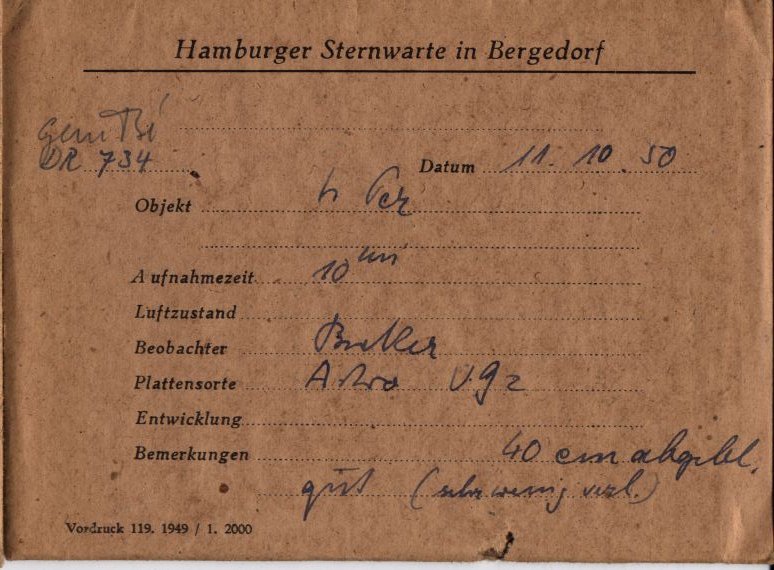 Hamburger Sternwarte in Bergedorf
DR 734
Datum 11. 10. 50
Objekt h Per
Aufnahmezeit 10 min
Luftzustand
Beobachter
Plattensorte Astro V. G 2
Entwicklung
Bemerkungen 40 cm abgebl.
gut (sehr wenig verl.)
Vordruck 119. 1949 / 1. 2000